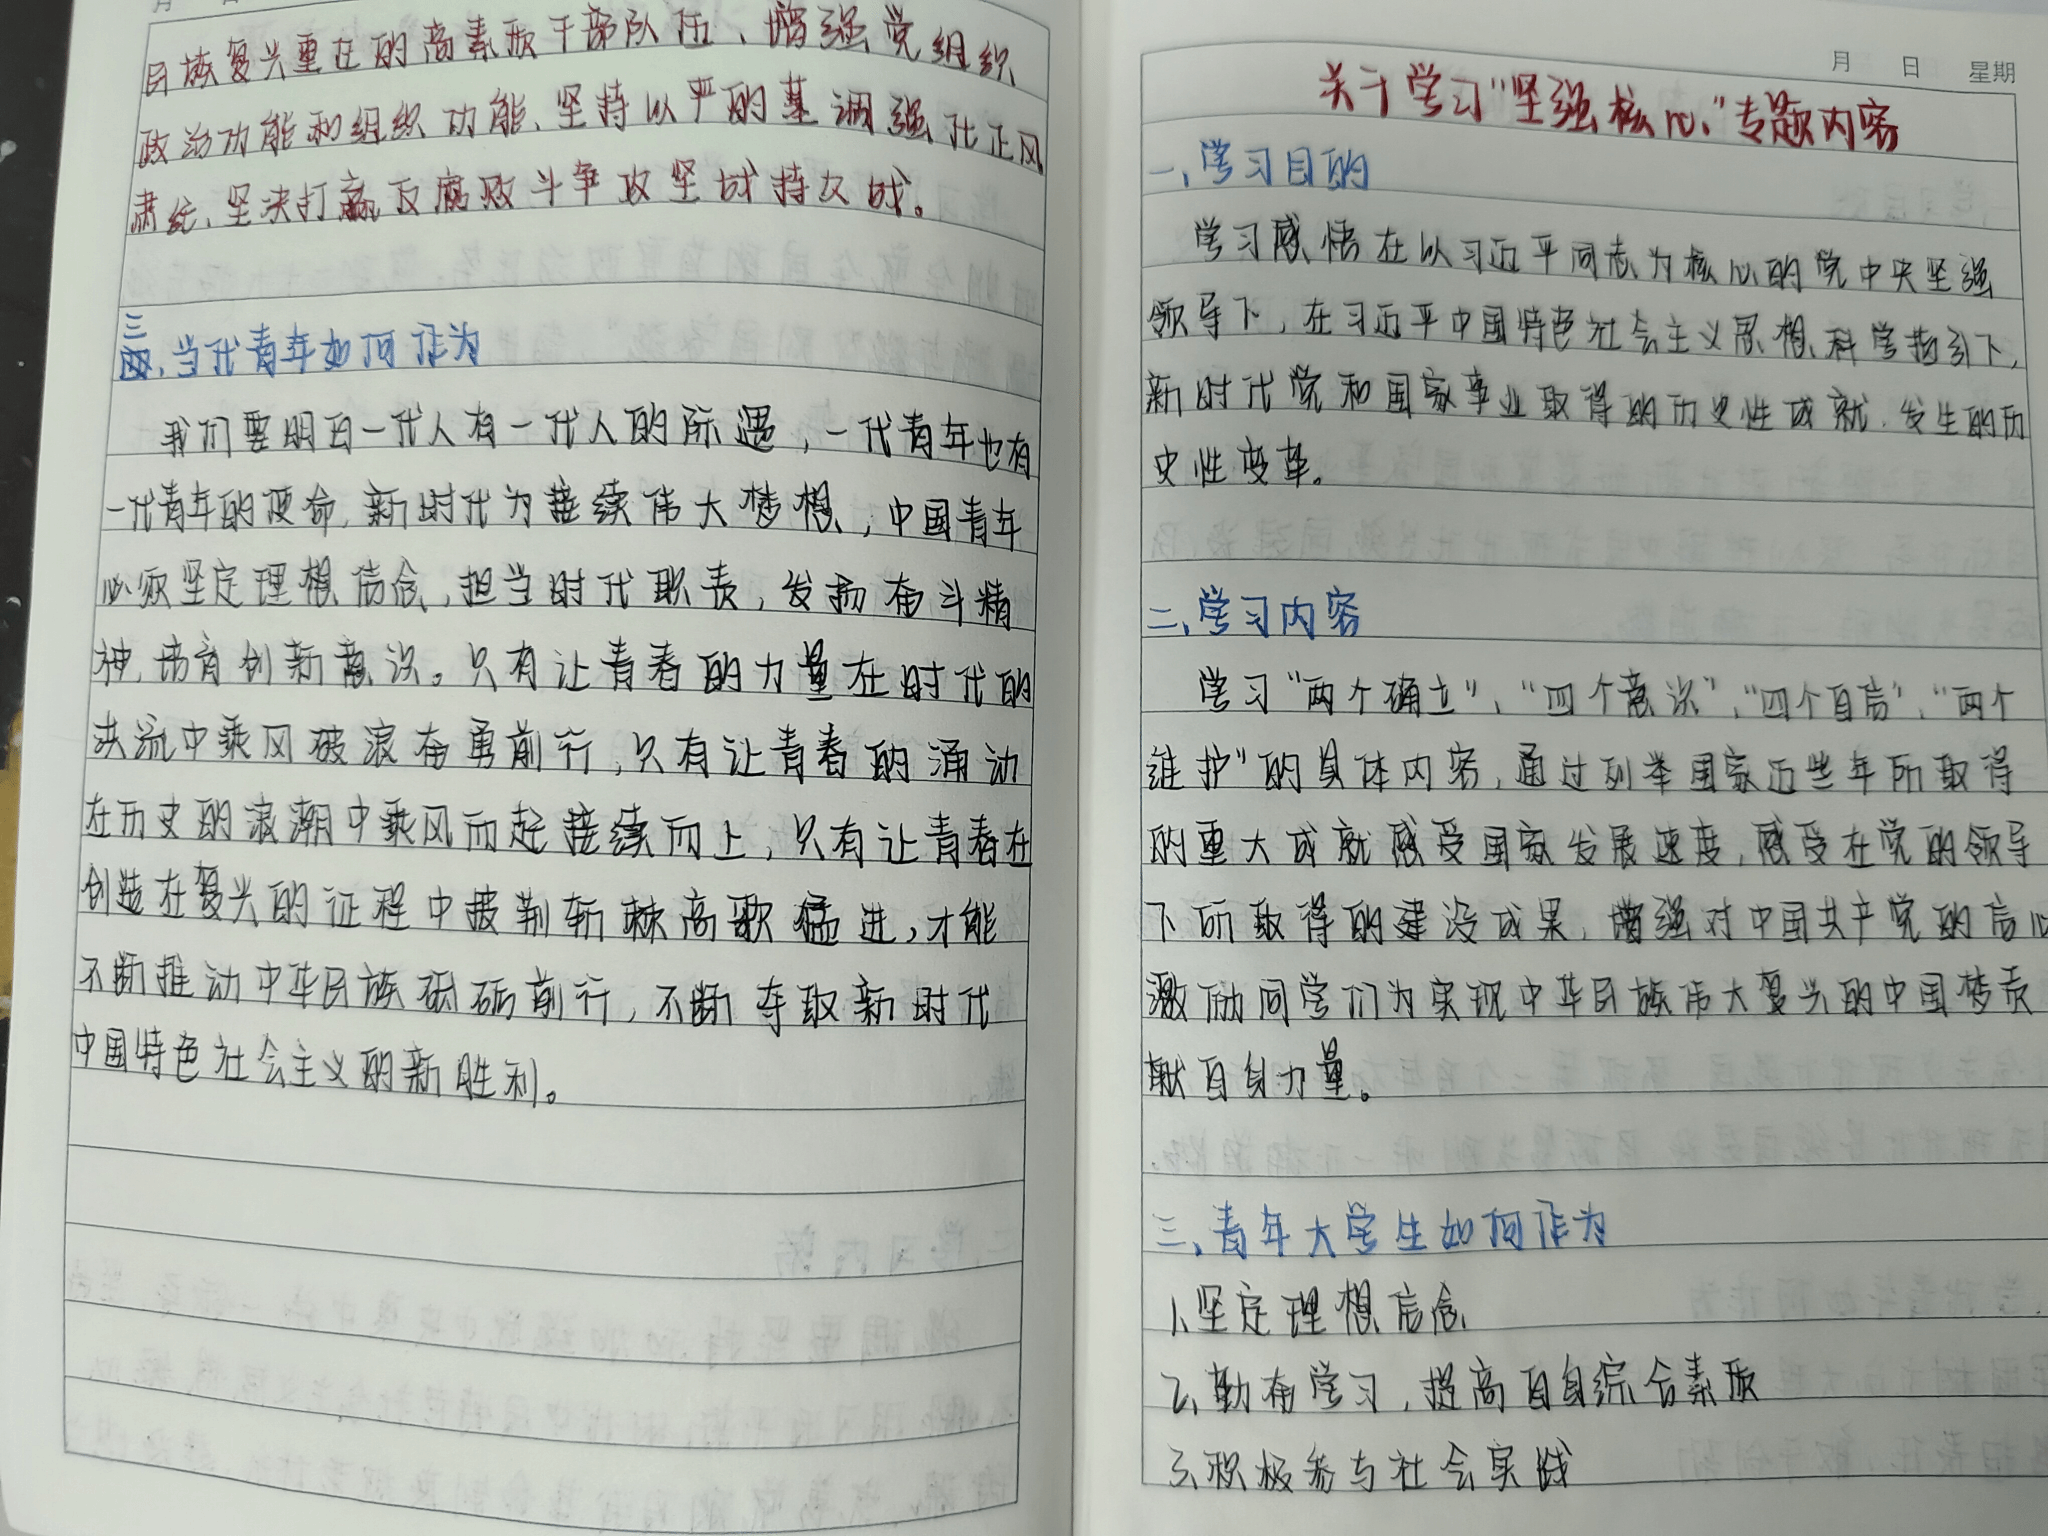 月 日
民族复兴重任的高素质干部队伍、增强党组织
政治功能和组织功能、坚持以严的基调强化正风
肃纪、坚决打赢反腐败斗争攻坚战持久战。
三、当代青年如何作为
我们要明白一代人有一代人的际遇，一代青年也有
一代青年的使命，新时代为接续伟大梦想，中国青年
必须坚定理想信念，担当时代职责，发扬奋斗精
神，培育创新意识。只有让青春的力量在时代的
洪流中乘风破浪奋勇前行，只有让青春的涌动
在历史的浪潮中乘风而起接续而上，只有让青春在
创造在复兴的征程中披荆斩棘高歌猛进，才能
不断推动中华民族砥砺前行，不断夺取新时代
中国特色社会主义的新胜利。
月 日 星期
关于学习“坚强核心”专题内容
一、学习目的
学习感悟在以习近平同志为核心的党中央坚强
领导下，在习近平中国特色社会主义思想科学指引下，
新时代党和国家事业取得的历史性成就，发生的历
史性变革。
二、学习内容
学习“两个确立”、“四个意识”、“四个自信”、“两个
维护”的具体内容，通过列举国家近些年所取得
的重大成就感受国家发展速度，感受在党的领导
下所取得的建设成果，增强对中国共产党的信心
激励同学们为实现中华民族伟大复兴的中国梦贡
献自身力量。
三、青年大学生如何作为
1、坚定理想信念
2、勤奋学习，提高自身综合素质
3、积极参与社会实践